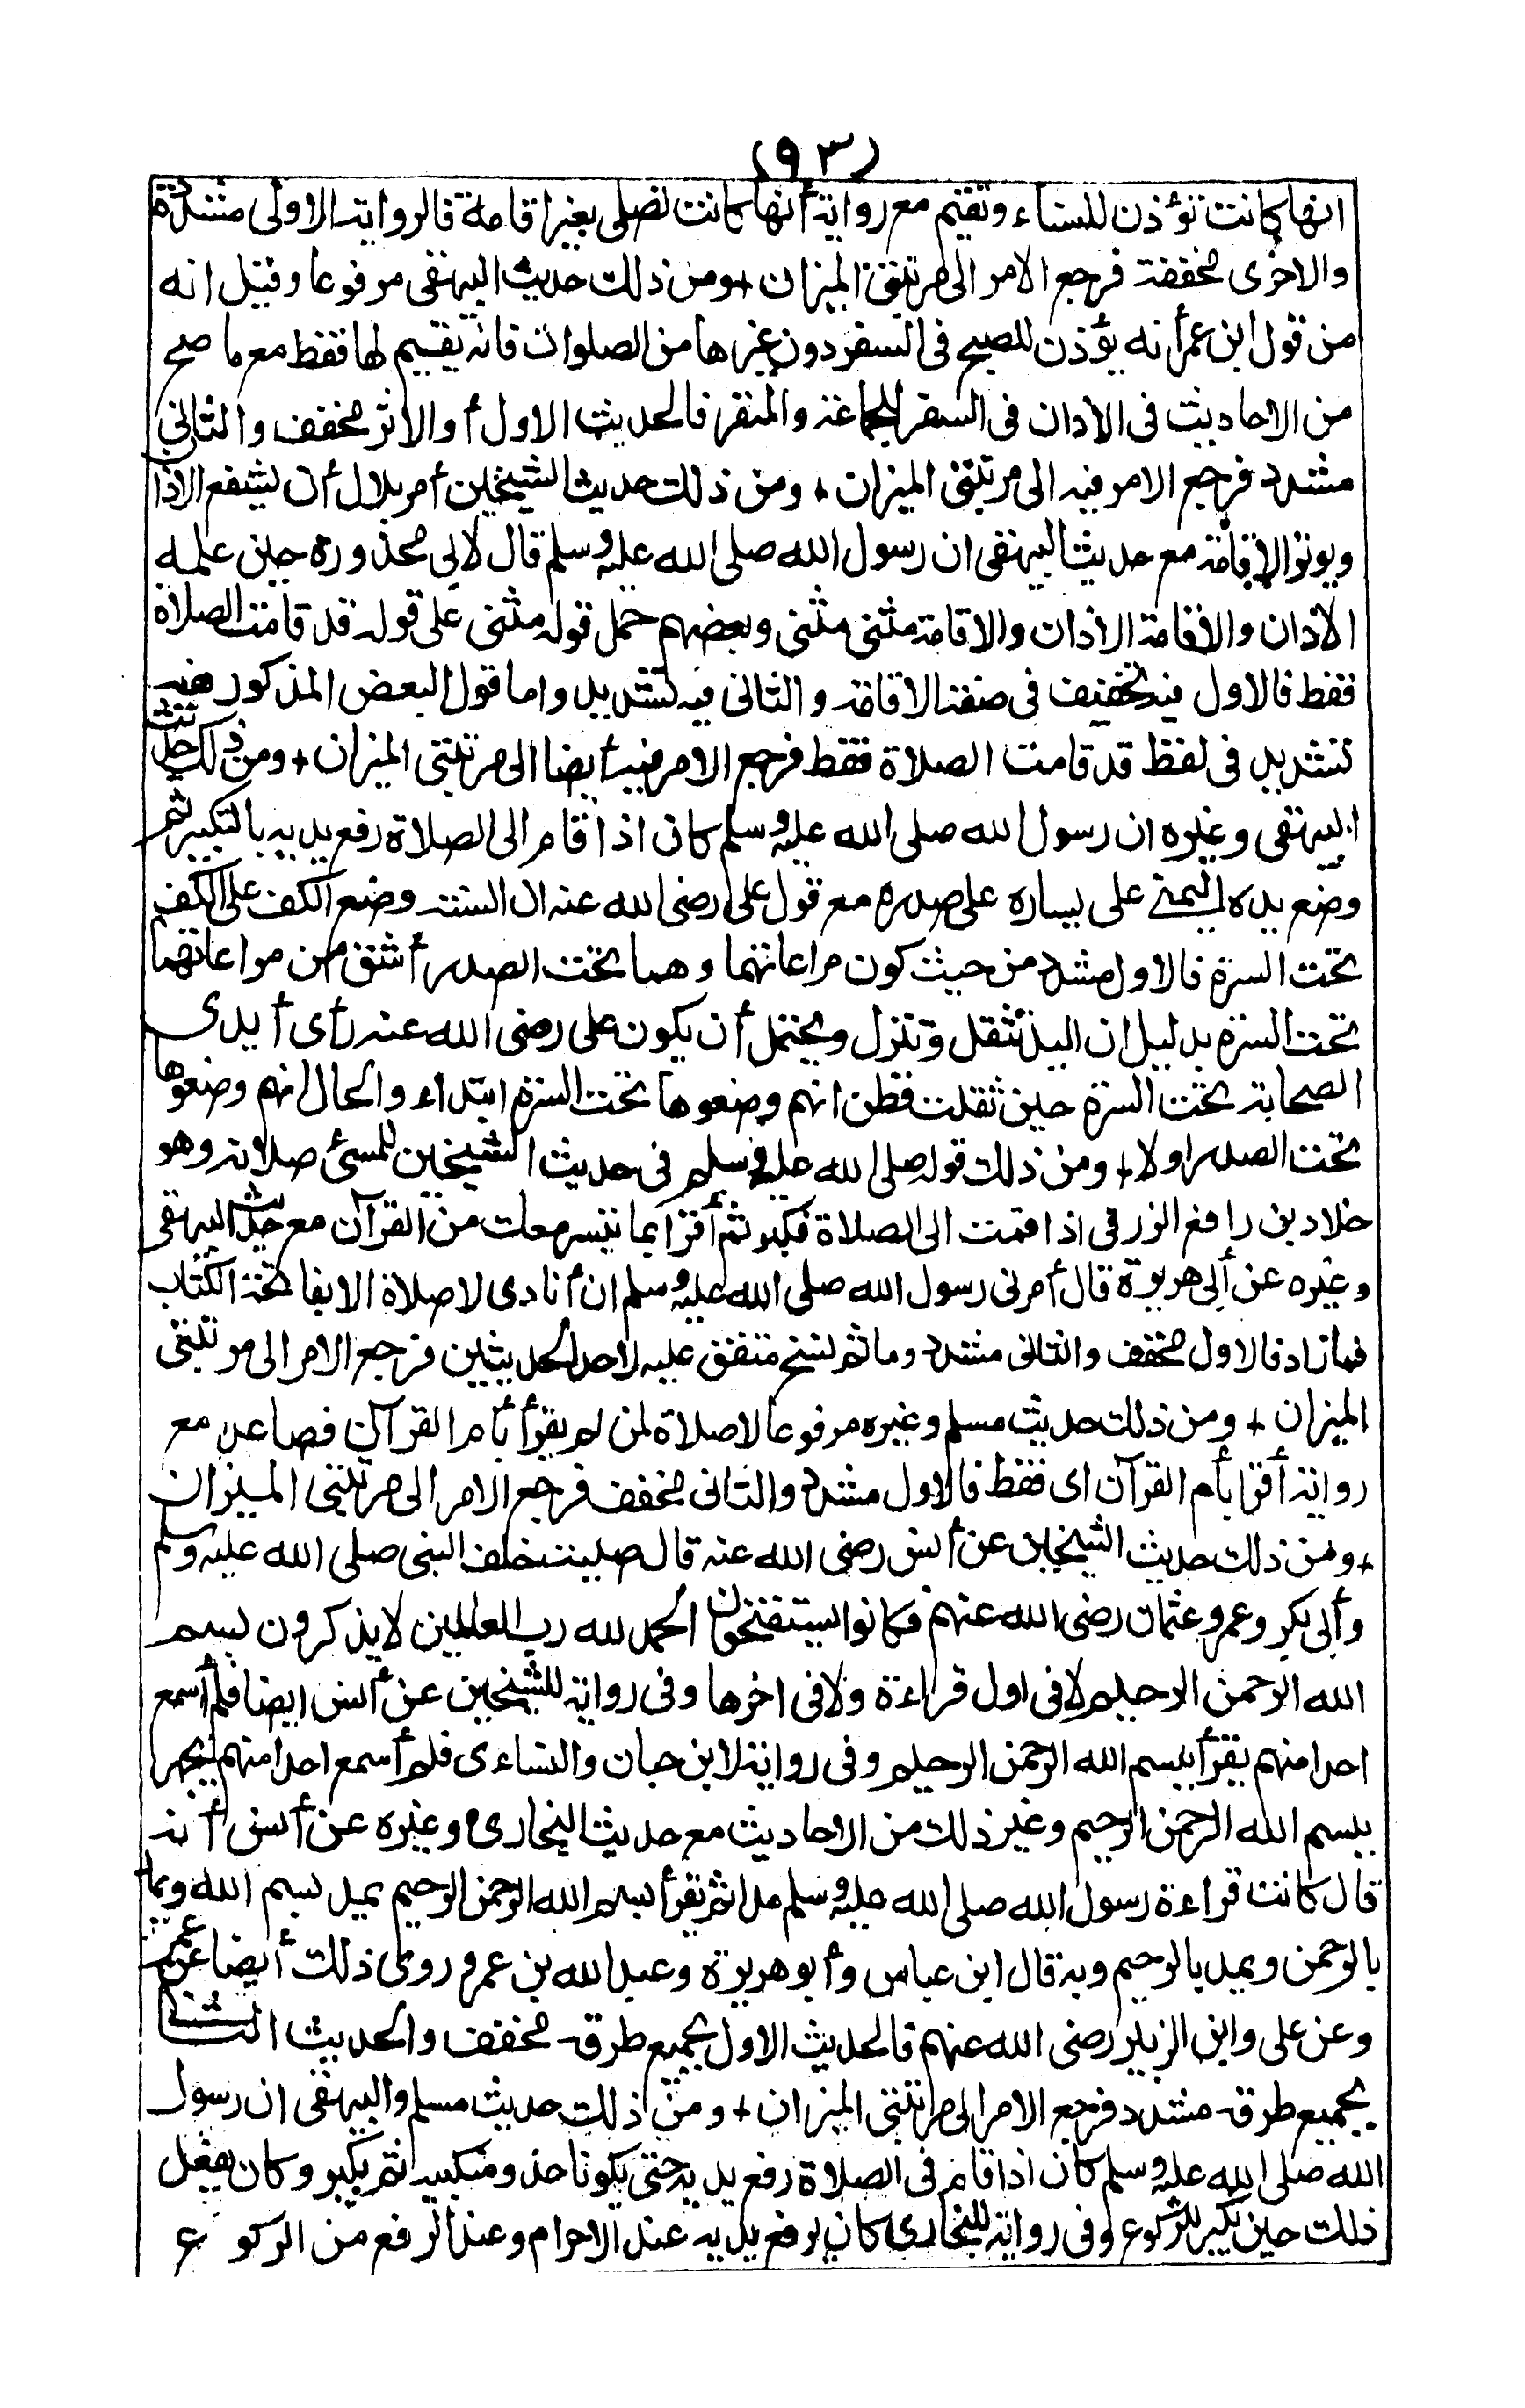 (٩٣)
انها كانت تؤذن للنساء وتقيم مع رواية أنها كانت تصلى بغير اقامة فالرواية الاولى مشددة
والاخرى مخففة فرجع الامر الى مرتبتى الميزان + ومن ذلك حديث البيهقى مرفوعا وقيل انه
من قول ابن عمر أنه يؤذن للصبح فى السفر دون غيرها من الصلوات فانه يقيم لها فقط مع ما صح
من الاحاديث فى الأذان فى السفر للجماعة والمنفرد فالحديث الاول أو الاثر مخفف والثانى
مشدد فرجع الامر فيه الى مرتبتى الميزان + ومن ذلك حديث الشيخين أمر بلال أن يشفع الاذان
ويوتر الإقامة مع حديث البيهقى ان رسول الله صلى الله عليه وسلم قال لابى محذورة حين علمه
الاذان والاقامة الاذان والاقامة مثنى مثنى وبعضهم حمل قوله مثنى على قوله قد قامت الصلاة
فقط فالاول فيه تخفيف فى صفة الاقامة والثانى فيه تشديد واما قول البعض المذكور ففيه
تشديد فى لفظ قد قامت الصلاة فقط فرجع الامر فيه أيضا الى مرتبتى الميزان + ومن ذلك حديث
البيهقى وغيره ان رسول الله صلى الله عليه وسلم كان اذا قام الى الصلاة رفع يديه بالتكبير ثم
وضع يده اليمنى على يساره على صدره مع قول على رضى الله عنه ان السنة وضع الكف على الكف
تحت السرة فالاول مشدد من حيث كون مراعاتهما وهما تحت الصدر أشق من مراعاتهما
تحت السرة بدليل ان اليد تثقل وتنزل ويحتمل أن يكون على رضى الله عنه رأى أيدى
الصحابة تحت السرة حين ثقلت فظن انهم وضعوها تحت السرة ابتداء والحال انهم وضعوها
تحت الصدر اولا + ومن ذلك قوله صلى الله عليه وسلم فى حديث الشيخين للمسئ صلاته وهو
خلاد بن رافع الزرقى اذا قمت الى الصلاة فكبر ثم أقرأ بما تيسر معك من القرآن مع حديث البيهقى
وغيره عن أبى هريرة قال أمرنى رسول الله صلى الله عليه وسلم ان أنادى لا صلاة الا بفاتحة الكتاب
فما زاد فالاول مخفف والثانى مشدد وما ثم نسخ متفق عليه لاحد الحديثين فرجع الامر الى مرتبتى
الميزان + ومن ذلك حديث مسلم وغيره مرفوعا لا صلاة لمن لم يقرأ بأم القرآن فصاعدا مع
رواية أقرا بأم القرآن اى فقط فالاول مشدد والثانى مخفف فرجع الامر الى مرتبتى الميزان
+ ومن ذلك حديث الشيخين عن أنس رضى الله عنه قال صليت خلف النبى صلى الله عليه وسلم
وأبى بكر وعمر وعثمان رضى الله عنهم فكانوا يستفتحون الحمد لله رب العالمين لا يذكرون بسم
الله الرحمن الرحيم لا فى اول قراءة ولا فى اخرها وفى رواية للشيخين عن أنس ايضا فلم أسمع
احدا منهم يقرأ ببسم الله الرحمن الرحيم وفى رواية لابن حبان والنساءى فلم أسمع احدا منهم يجهر
ببسم الله الرحمن الرحيم وغير ذلك من الاحاديث مع حديث البخارى وغيره عن أنس أنه
قال كانت قراءة رسول الله صلى الله عليه وسلم مدا ثم يقرأ بسم الله الرحمن الرحيم يمد بسم الله ويمد
بالرحمن ويمد بالرحيم وبه قال ابن عباس وأبو هريرة وعبد الله بن عمر وروى ذلك أيضا عن عمر
وعن على وابن الزبير رضى الله عنهم فالحديث الاول بجميع طرقه مخفف والحديث الثانى
بجميع طرقه مشدد فرجع الامر الى مرتبتى الميزان + ومن ذلك حديث مسلم والبيهقى ان رسول
الله صلى الله عليه وسلم كان اذا قام فى الصلاة رفع يديه حتى يكونا حذو منكبيه ثم يكبر وكان يفعل
ذلك حين يكبر للركوع وفى رواية للبخارى كان يرفع يديه عند الاحرام وعند الرفع من الركوع